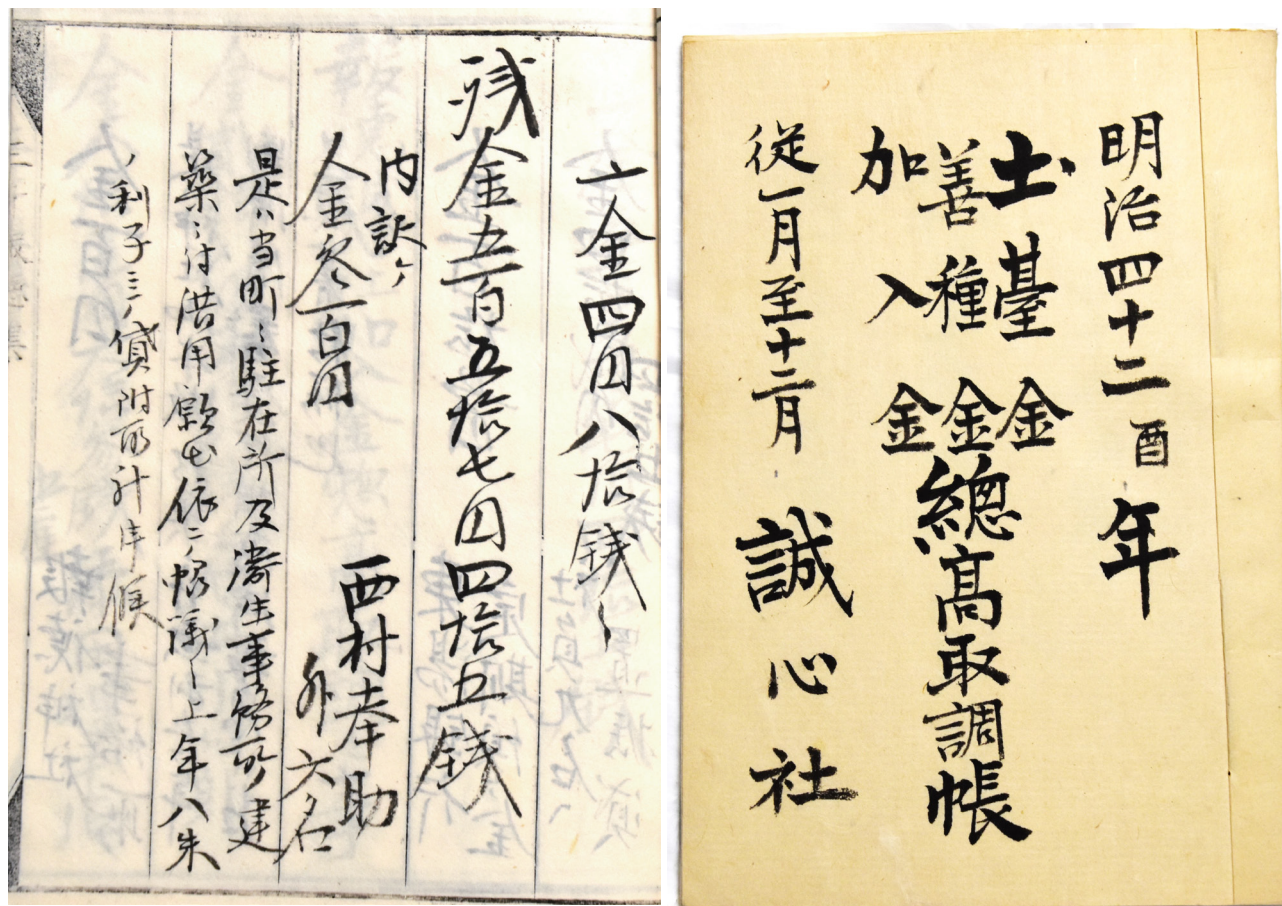 明治四十二酉年
土臺金
善種金
加入金
總高取調帳
従一月至十二月
誠心社
一金四円八拾銭
残金五百五拾七円四拾五銭
内訳
金参百円
西村奉助
外六名
是ハ当町ニ駐在所及衛生事務所ノ建
築ニ付借用願出依テ協議ノ上年八朱
ノ利子ニテ貸附
候